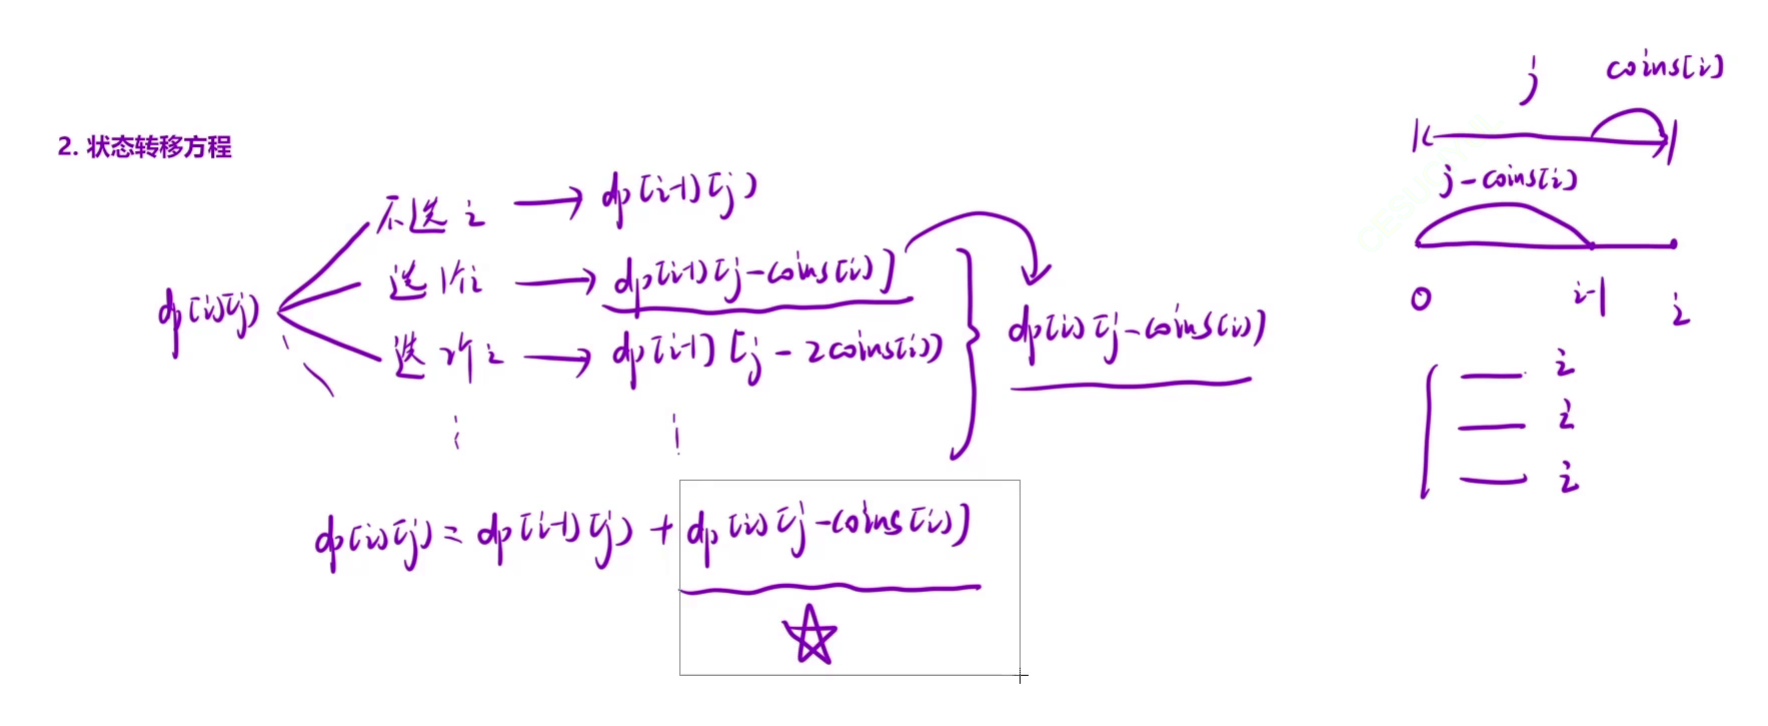 2. 状态转移方程
不选 i → dp[i-1][j]
选1个i → dp[i-1][j-coins[i]]
dp[i][j]
选2个i → dp[i-1][j-2coins[i]]
dp[i][j-coins[i]]
dp[i][j] = dp[i-1][j] + dp[i][j-coins[i]]
j coins[i]
j-coins[i]
0 i-1 i
i
i
i